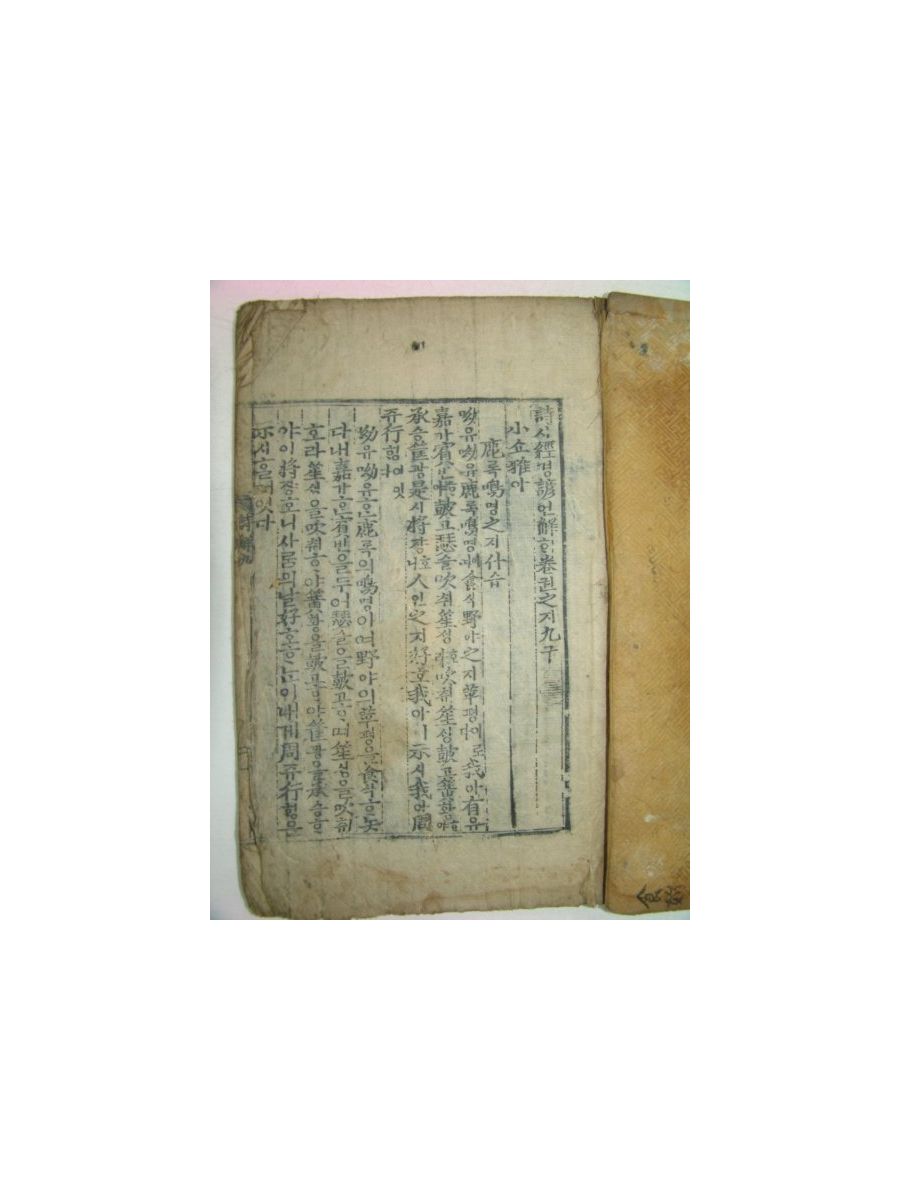 詩시經경諺언解ᄒᆡ卷권之지九구
小쇼雅아
鹿록鳴명之지什습
呦유呦유鹿록鳴명이여食식野야之지苹평이로다我아有유
嘉가賓빈ᄒᆞ야鼓고瑟슬吹취笙ᄉᆡᆼ호라吹취笙ᄉᆡᆼ鼓고簧황ᄒᆞ야
承승筐광是시將쟝호니人인之지好호我아ㅣ示시我아周
쥬行ᄒᆡᆼ이엇다
呦유呦유ᄒᆞᆫ鹿록의鳴명이여野야의苹평을食식ᄒᆞ놋
다내嘉가ᄒᆞᆫ賓빈을두어瑟슬을鼓고ᄒᆞ며笙ᄉᆡᆼ을吹취
호라笙ᄉᆡᆼ을吹취ᄒᆞ야簧황을鼓고ᄒᆞ야筐광을承승ᄒᆞ
야이將쟝호니사ᄅᆞᆷ의날好호ᄒᆞᄂᆞ니이내게周쥬行ᄒᆡᆼ을
示시ᄒᆞᆯ띠엇다